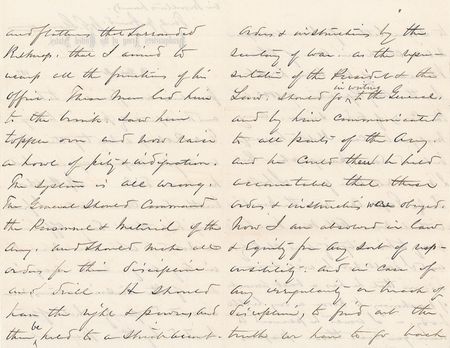 and flatters the surrounded
Bishop, that I aimed to
usurp all the functions of his
office. These men led him
to the brink. Saw him
topple over and now raise
a howl of pity & indignation.
The system is all wrong.
The General should Command
the Personnel & Material of the
Army. and should make all
orders for their discipline
and drill. He should
have the right & power, and
then be held to a strict account.
orders & instructions by the
Secretary of War. as the repre-
sentative of the President & the
Law. should go in writing to the General.
and by him Communicated
to all parts of the Army.
and he could then be held
accountable that these
orders & instructions were obeyed.
Now I am absolved in Law
& Equity for any sort of resp-
onsibility. and in case of
any irregularity or breach of
discipline, to find out the
truth we have to go back